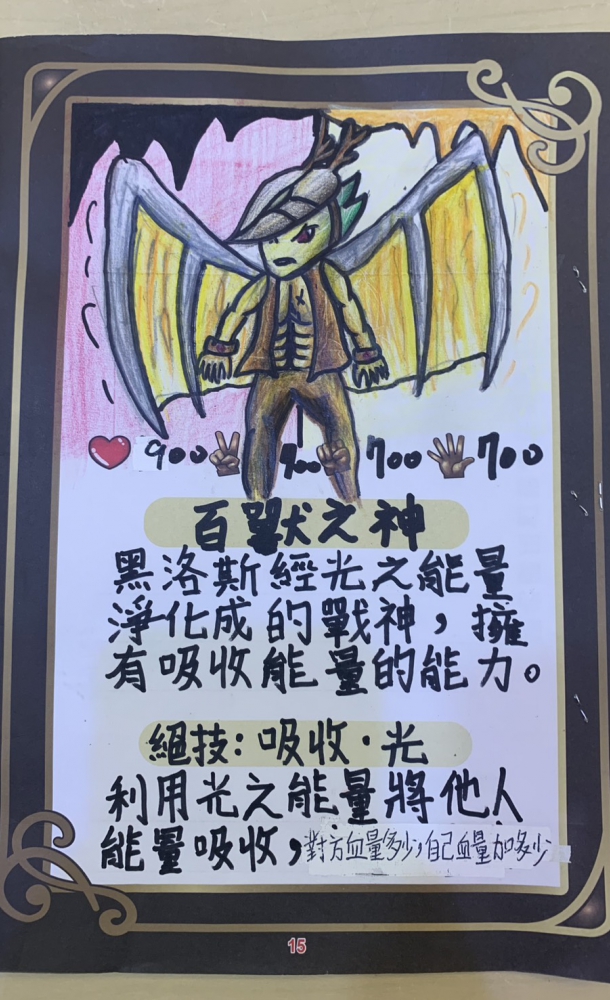 900 900 700 700
百獸之神
黑洛斯經光之能量
淨化成的戰神，擁
有吸收能量的能力。
絕技：吸收·光
利用光之能量將他人
能量吸收，對方血量多少，自己血量加多少
15